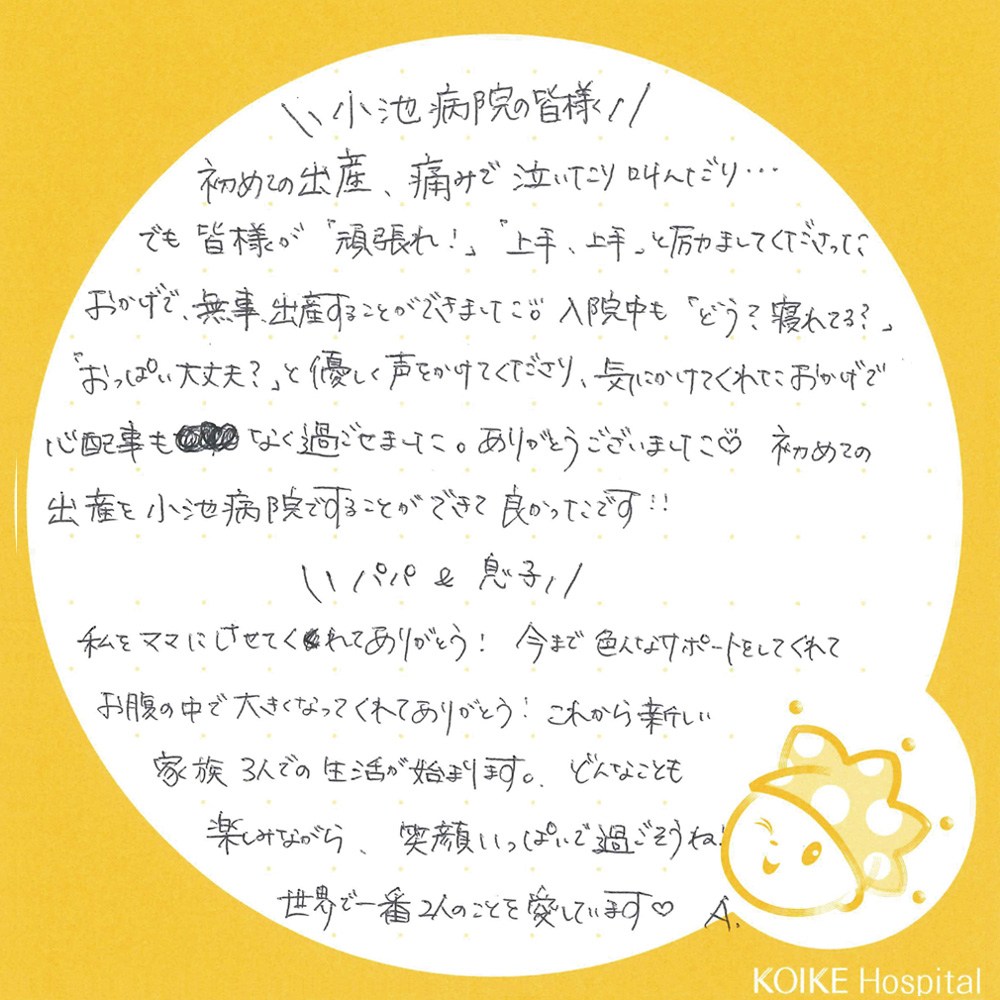 \\ 小池病院の皆様 //
初めての出産、痛みで泣いたり叫んだり…
でも皆様が「頑張れ!」「上手、上手」と励ましてくださった
おかげで、無事、出産することができました♡。入院中も「どう?寝れてる?」
「おっぱい大丈夫?」と優しく声をかけてくださり、気にかけてくれたおかげで
心配事も なく過ごせました。ありがとうございました♡ 初めての
出産を小池病院ですることができて良かったです!!
\\ パパ & 息子 //
私をママにさせてくれてありがとう! 今まで色んなサポートをしてくれて
お腹の中で大きくなってくれてありがとう! これから新しい
家族3人での生活が始まります。どんなことも
楽しみながら、笑顔いっぱいで過ごそうね!
世界で一番2人のことを愛しています♡ A.
KOIKE Hospital